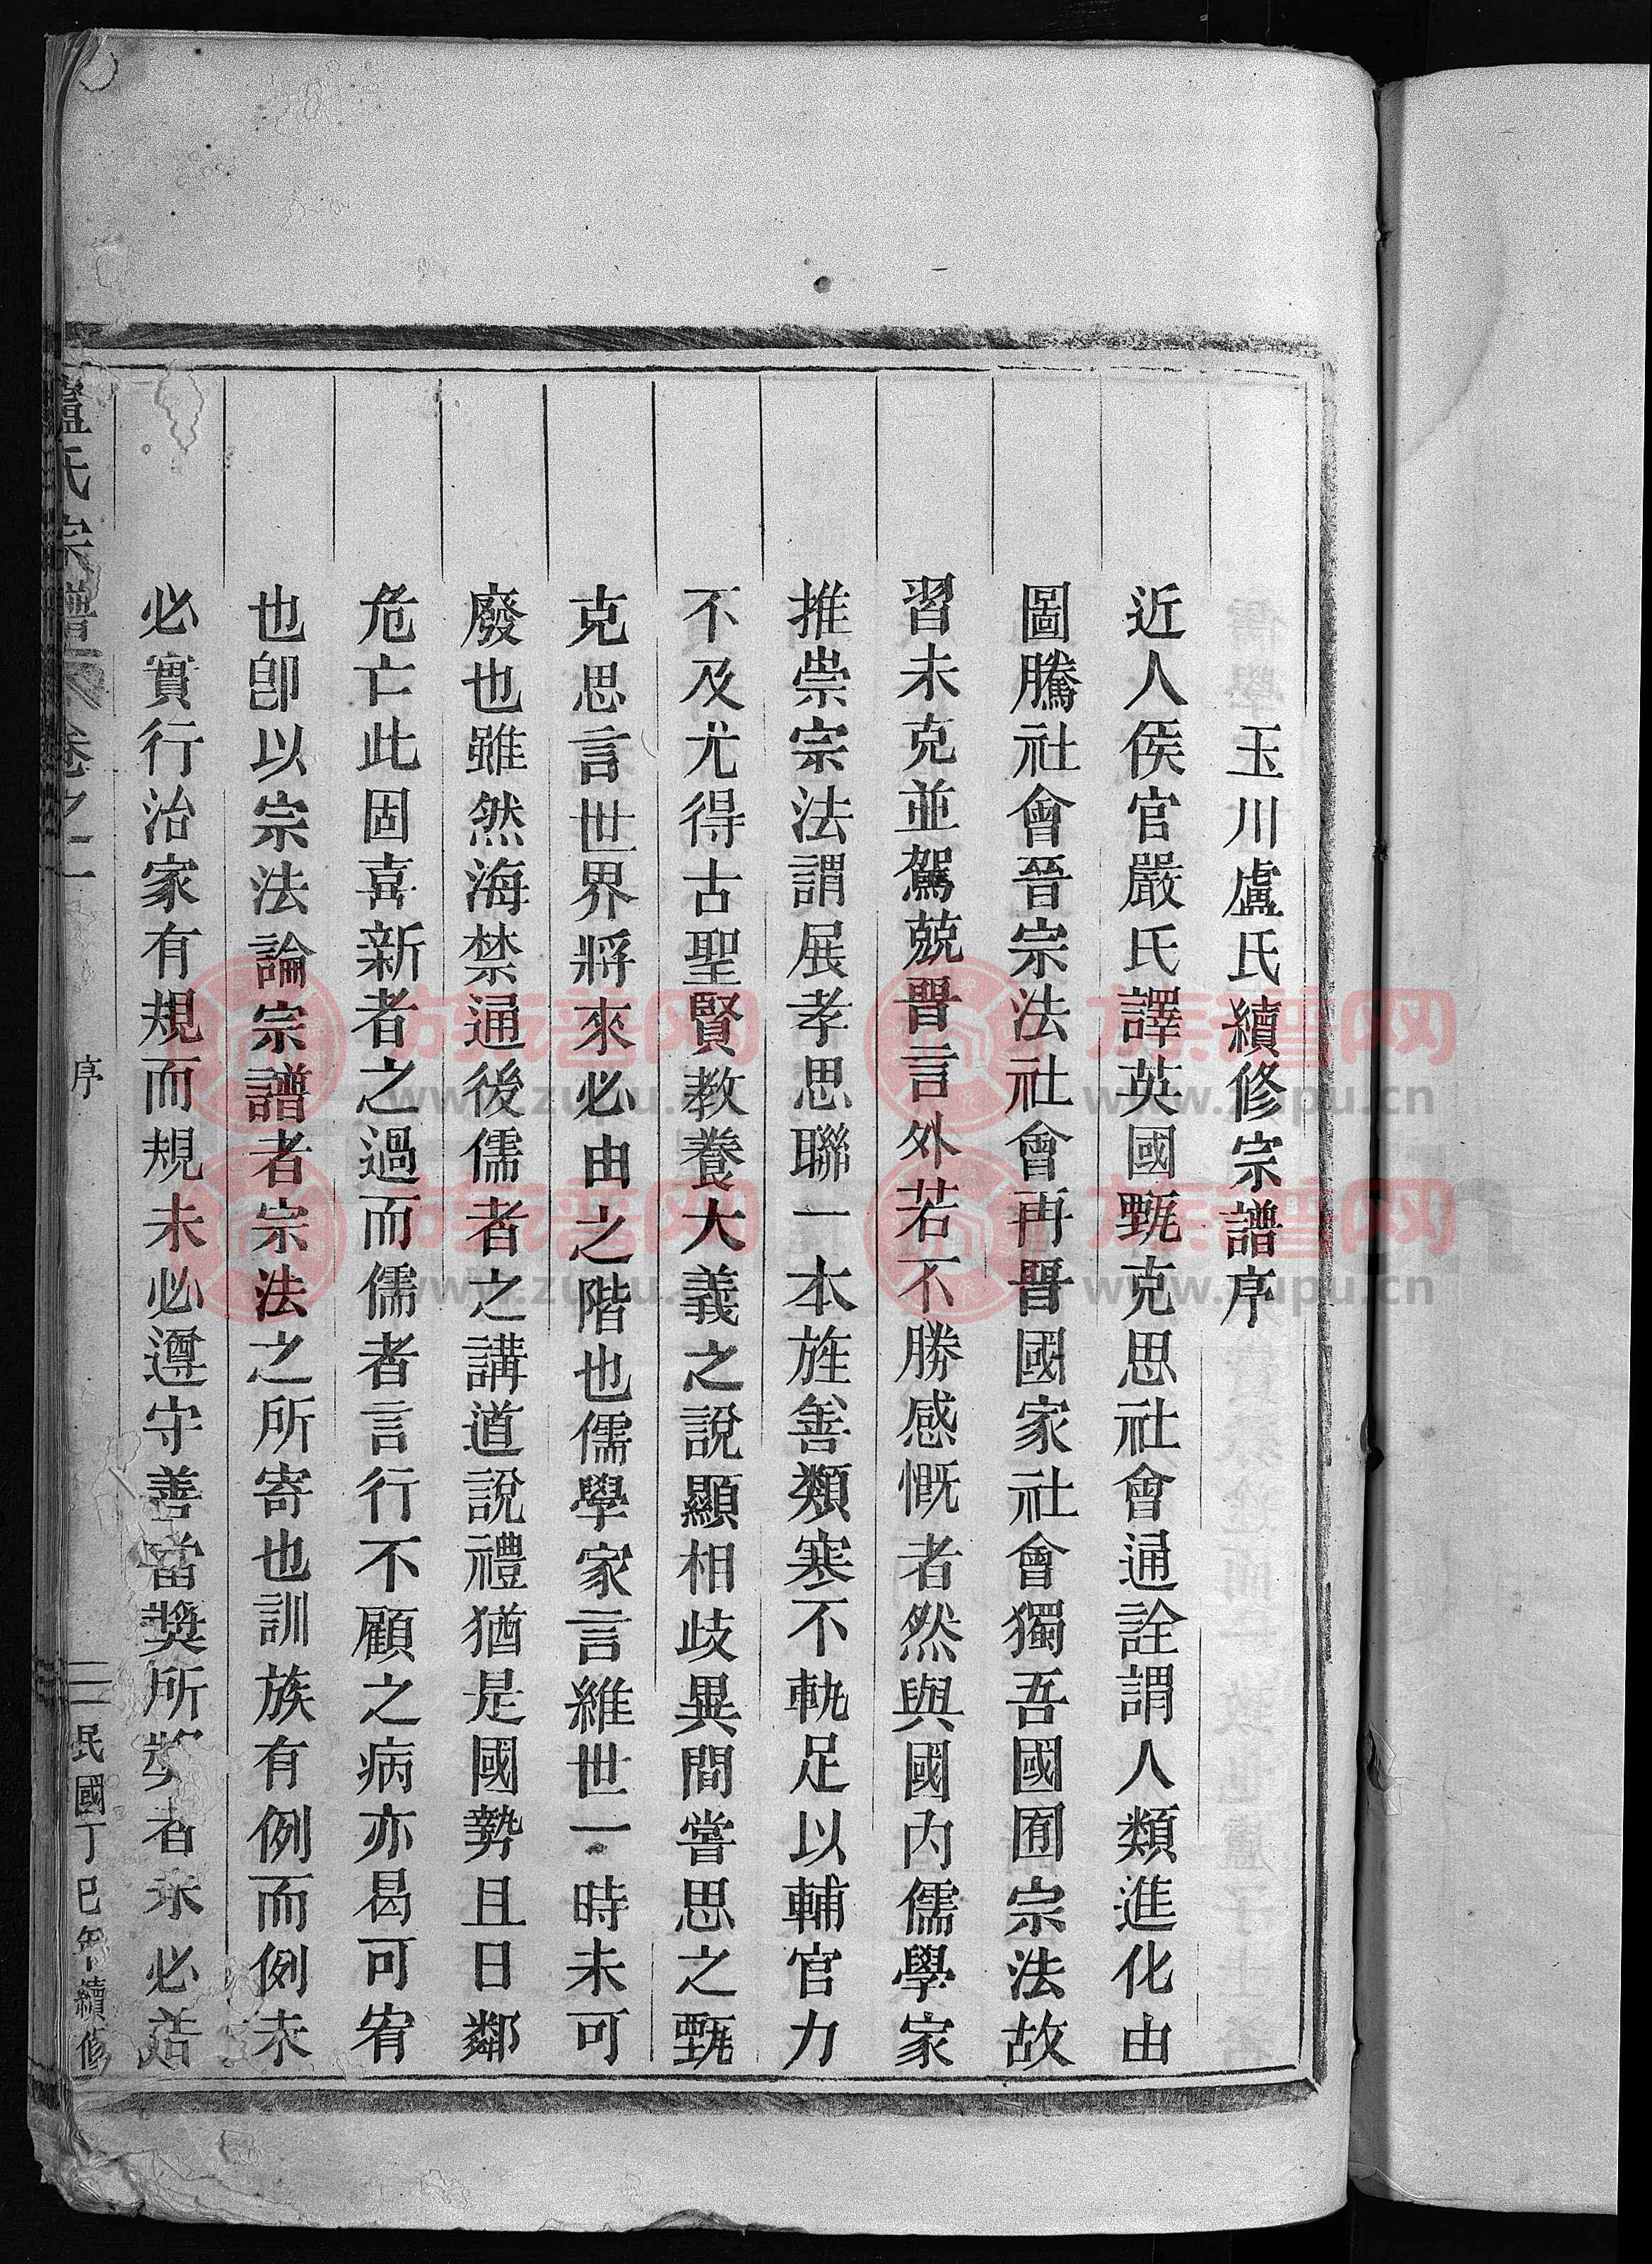 玉川盧氏續修宗譜序
近人侯官嚴氏譯英國甄克思社會通詮謂人類進化由
圖騰社會晉宗法社會再晋國家社會獨吾國囿宗法故
習未克並駕兢晋言外若不勝感慨者然與國內儒學家
推崇宗法謂展孝思聯一本旌善類寒不軌足以輔官力
不及尤得古聖賢教養大義之說顯相歧異間嘗思之甄
克思言世界將來必由之階也儒學家言維世一時未可
廢也雖然海禁通後儒者之講道說禮猶是國勢且日鄰
危亡此固喜新者之過而儒者言行不顧之病亦曷可宥
也卽以宗法論宗譜者宗法之所寄也訓族有例而例未
必實行治家有規而規未必遵守善當獎所獎者未必
盧氏宗譜 卷之一
序
二
民國丁巳年續修
族譜网
www.zupu.cn
族譜网
www.zupu.cn
族譜网
www.zupu.cn
族譜网
www.zupu.cn